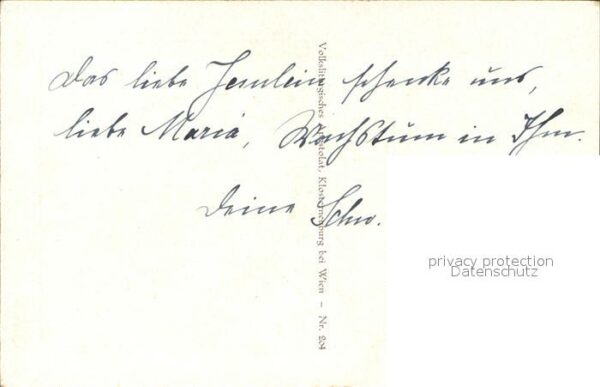 Das liebe Jesulein schenke uns,
liebe Maria, Wachstum in Ihm.
Deine Schw.
Volksliturgisches Apostolat, Klosterneuburg bei Wien – Nr. 204
privacy protection
Datenschutz